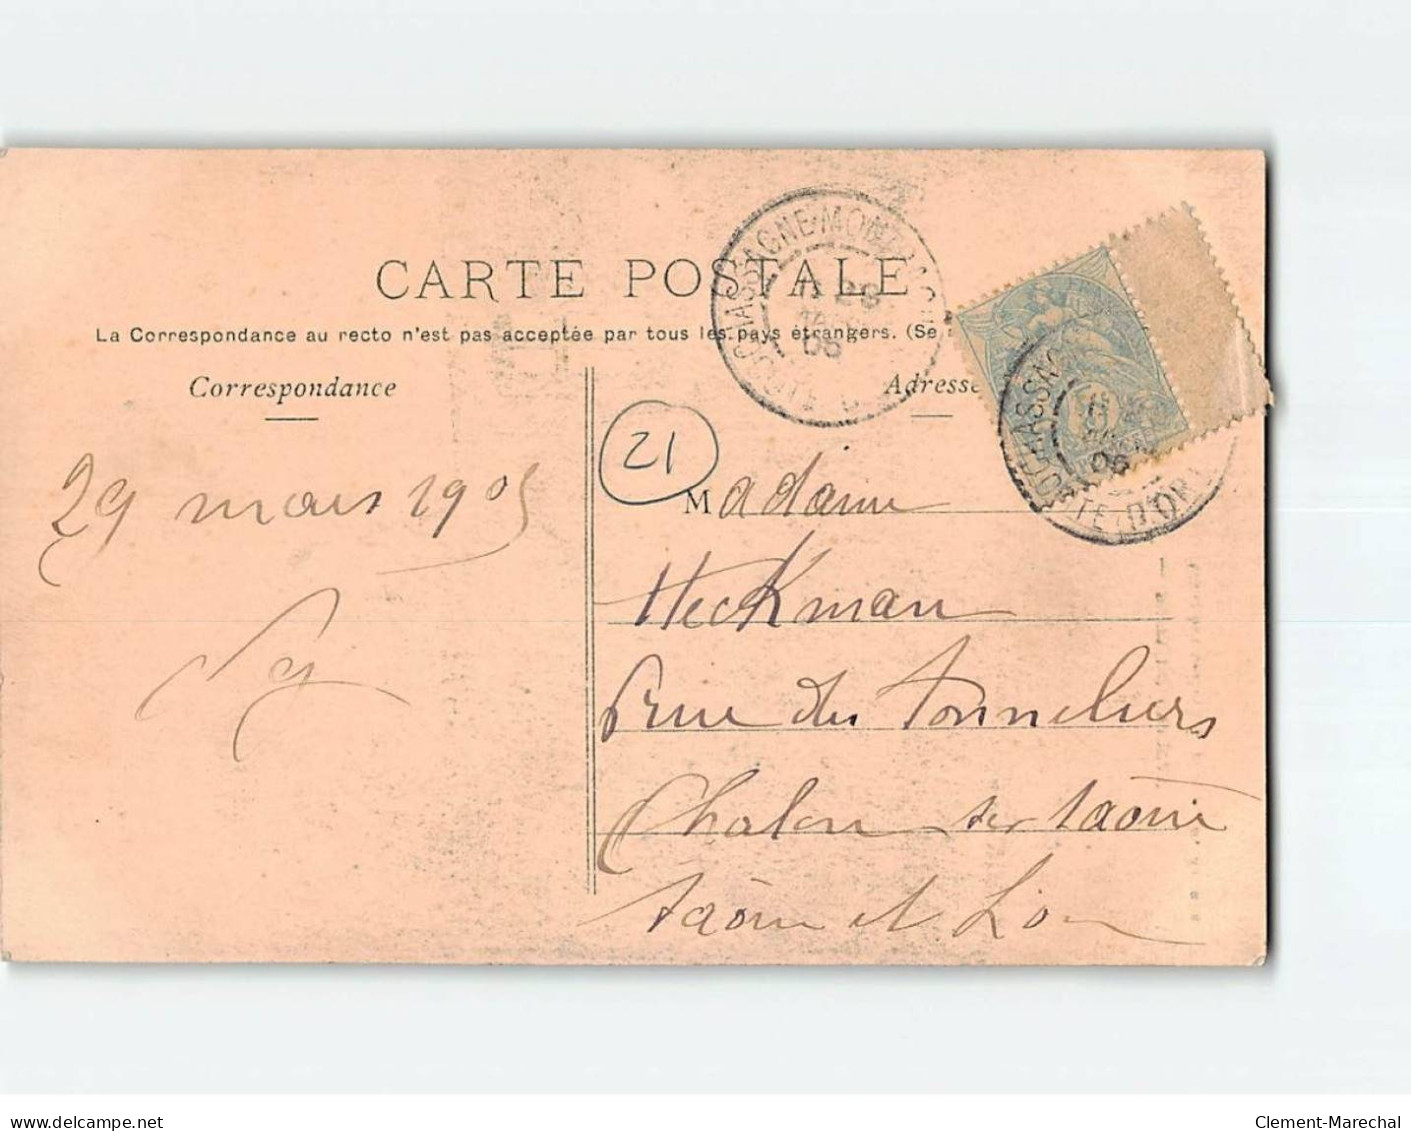 CARTE POSTALE
La Correspondance au recto n'est pas acceptée par tous les pays étrangers. (Se
Correspondance
Adresse
29 mars 1905
21
Madame
Heckman
rue des Tonneliers
Chalon sur Saône
Saône et Loi
CHASSAGNE-MONTRACHET
COTE D'OR
05
CHASSAGNE
COTE D'OR
Clement-Marechal
delcampe.net